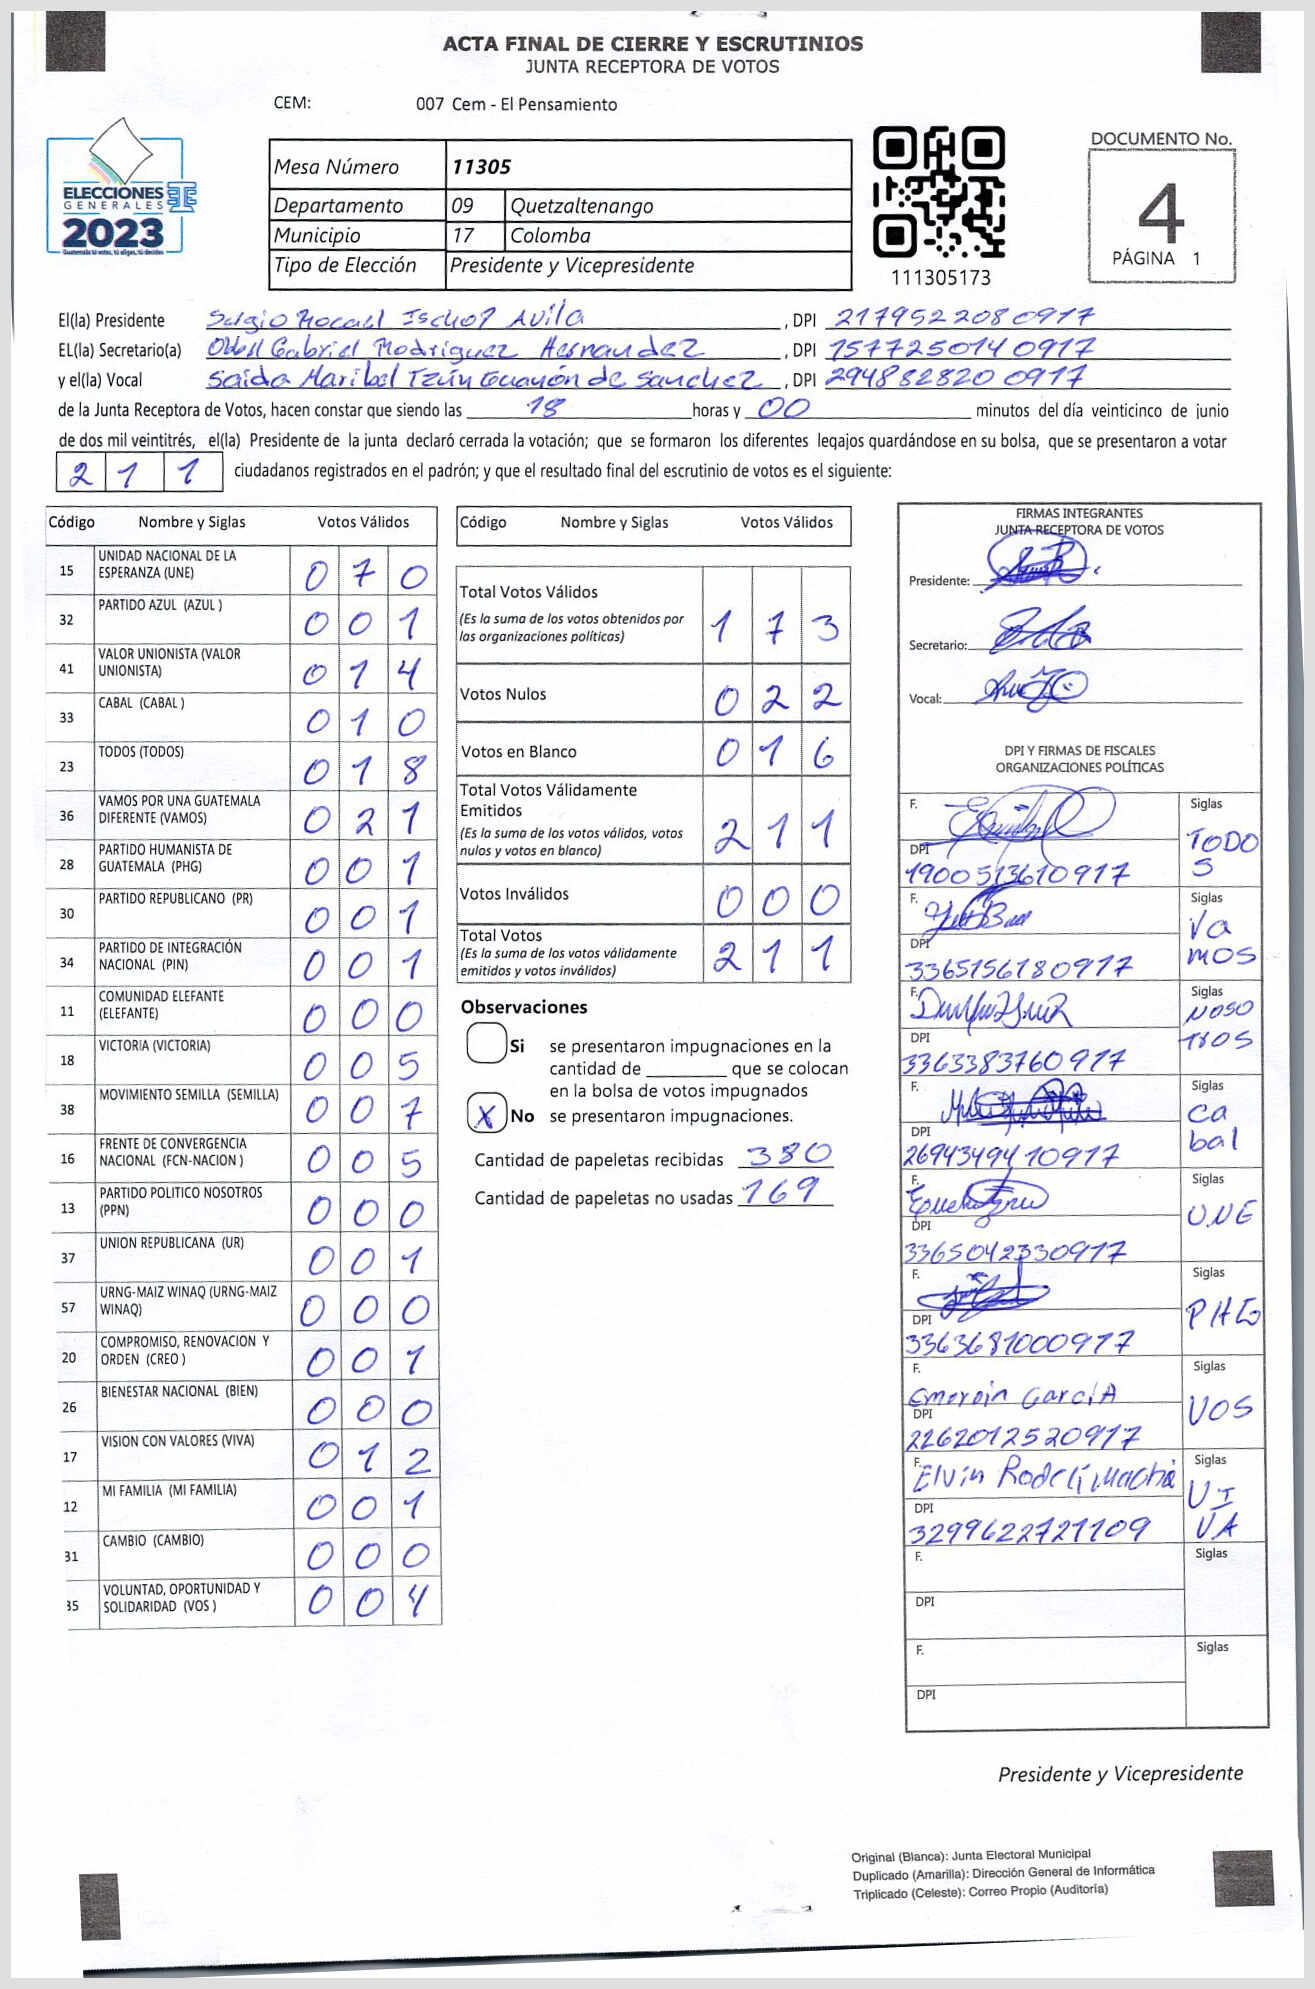 ACTA FINAL DE CIERRE Y ESCRUTINIOS
JUNTA RECEPTORA DE VOTOS
CEM: 007 Cem - El Pensamiento
ELECCIONES
GENERALES
2023
Guatemala tú votas, tú eliges, tú decides
Mesa Número 11305
Departamento 09 Quetzaltenango
Municipio 17 Colomba
Tipo de Elección Presidente y Vicepresidente
111305173
DOCUMENTO No.
4
PÁGINA 1
El(la) Presidente Avila , DPI 2179522080917
EL(la) Secretario(a) Gabriel Rodriguez Hernandez , DPI 1577250140917
y el(la) Vocal Saida Maribel de Sanchez , DPI 2948828200917
de la Junta Receptora de Votos, hacen constar que siendo las 18 horas y 00 minutos del día veinticinco de junio
de dos mil veintitrés, el(la) Presidente de la junta declaró cerrada la votación; que se formaron los diferentes legajos guardándose en su bolsa, que se presentaron a votar
2 1 1 ciudadanos registrados en el padrón; y que el resultado final del escrutinio de votos es el siguiente:
Código Nombre y Siglas Votos Válidos
15 UNIDAD NACIONAL DE LA ESPERANZA (UNE) 0 7 0
32 PARTIDO AZUL (AZUL ) 0 0 1
41 VALOR UNIONISTA (VALOR UNIONISTA) 0 1 4
33 CABAL (CABAL ) 0 1 0
23 TODOS (TODOS) 0 1 8
36 VAMOS POR UNA GUATEMALA DIFERENTE (VAMOS) 0 2 1
28 PARTIDO HUMANISTA DE GUATEMALA (PHG) 0 0 1
30 PARTIDO REPUBLICANO (PR) 0 0 1
34 PARTIDO DE INTEGRACIÓN NACIONAL (PIN) 0 0 1
11 COMUNIDAD ELEFANTE (ELEFANTE) 0 0 0
18 VICTORIA (VICTORIA) 0 0 5
38 MOVIMIENTO SEMILLA (SEMILLA) 0 0 7
16 FRENTE DE CONVERGENCIA NACIONAL (FCN-NACION ) 0 0 5
13 PARTIDO POLITICO NOSOTROS (PPN) 0 0 0
37 UNION REPUBLICANA (UR) 0 0 1
57 URNG-MAIZ WINAQ (URNG-MAIZ WINAQ) 0 0 0
20 COMPROMISO, RENOVACION Y ORDEN (CREO ) 0 0 1
26 BIENESTAR NACIONAL (BIEN) 0 0 0
17 VISION CON VALORES (VIVA) 0 1 2
12 MI FAMILIA (MI FAMILIA) 0 0 1
31 CAMBIO (CAMBIO) 0 0 0
35 VOLUNTAD, OPORTUNIDAD Y SOLIDARIDAD (VOS ) 0 0 4
Código Nombre y Siglas Votos Válidos
Total Votos Válidos
(Es la suma de los votos obtenidos por las organizaciones políticas) 1 7 3
Votos Nulos 0 2 2
Votos en Blanco 0 1 6
Total Votos Válidamente Emitidos
(Es la suma de los votos válidos, votos nulos y votos en blanco) 2 1 1
Votos Inválidos 0 0 0
Total Votos
(Es la suma de los votos válidamente emitidos y votos inválidos) 2 1 1
Observaciones
Si se presentaron impugnaciones en la
cantidad de ________ que se colocan
en la bolsa de votos impugnados
X No se presentaron impugnaciones.
Cantidad de papeletas recibidas 380
Cantidad de papeletas no usadas 169
FIRMAS INTEGRANTES
JUNTA RECEPTORA DE VOTOS
Presidente:
Secretario:
Vocal:
DPI Y FIRMAS DE FISCALES
ORGANIZACIONES POLÍTICAS
F. Siglas TODOS
DPI 1900513610917
F. Siglas VAMOS
DPI 3365156180917
F. Siglas NOSOTROS
DPI 3363383760917
F. Siglas Cabal
DPI 2694349410917
F. Siglas UNE
DPI 3365042330917
F. Siglas PHG
DPI 3363681000917
F. García Siglas VOS
DPI 2262012520917
F. Elvin Siglas VIVA
DPI 3299622721109
F. Siglas
DPI
F. Siglas
DPI
Presidente y Vicepresidente
Original (Blanca): Junta Electoral Municipal
Duplicado (Amarilla): Dirección General de Informática
Triplicado (Celeste): Correo Propio (Auditoría)